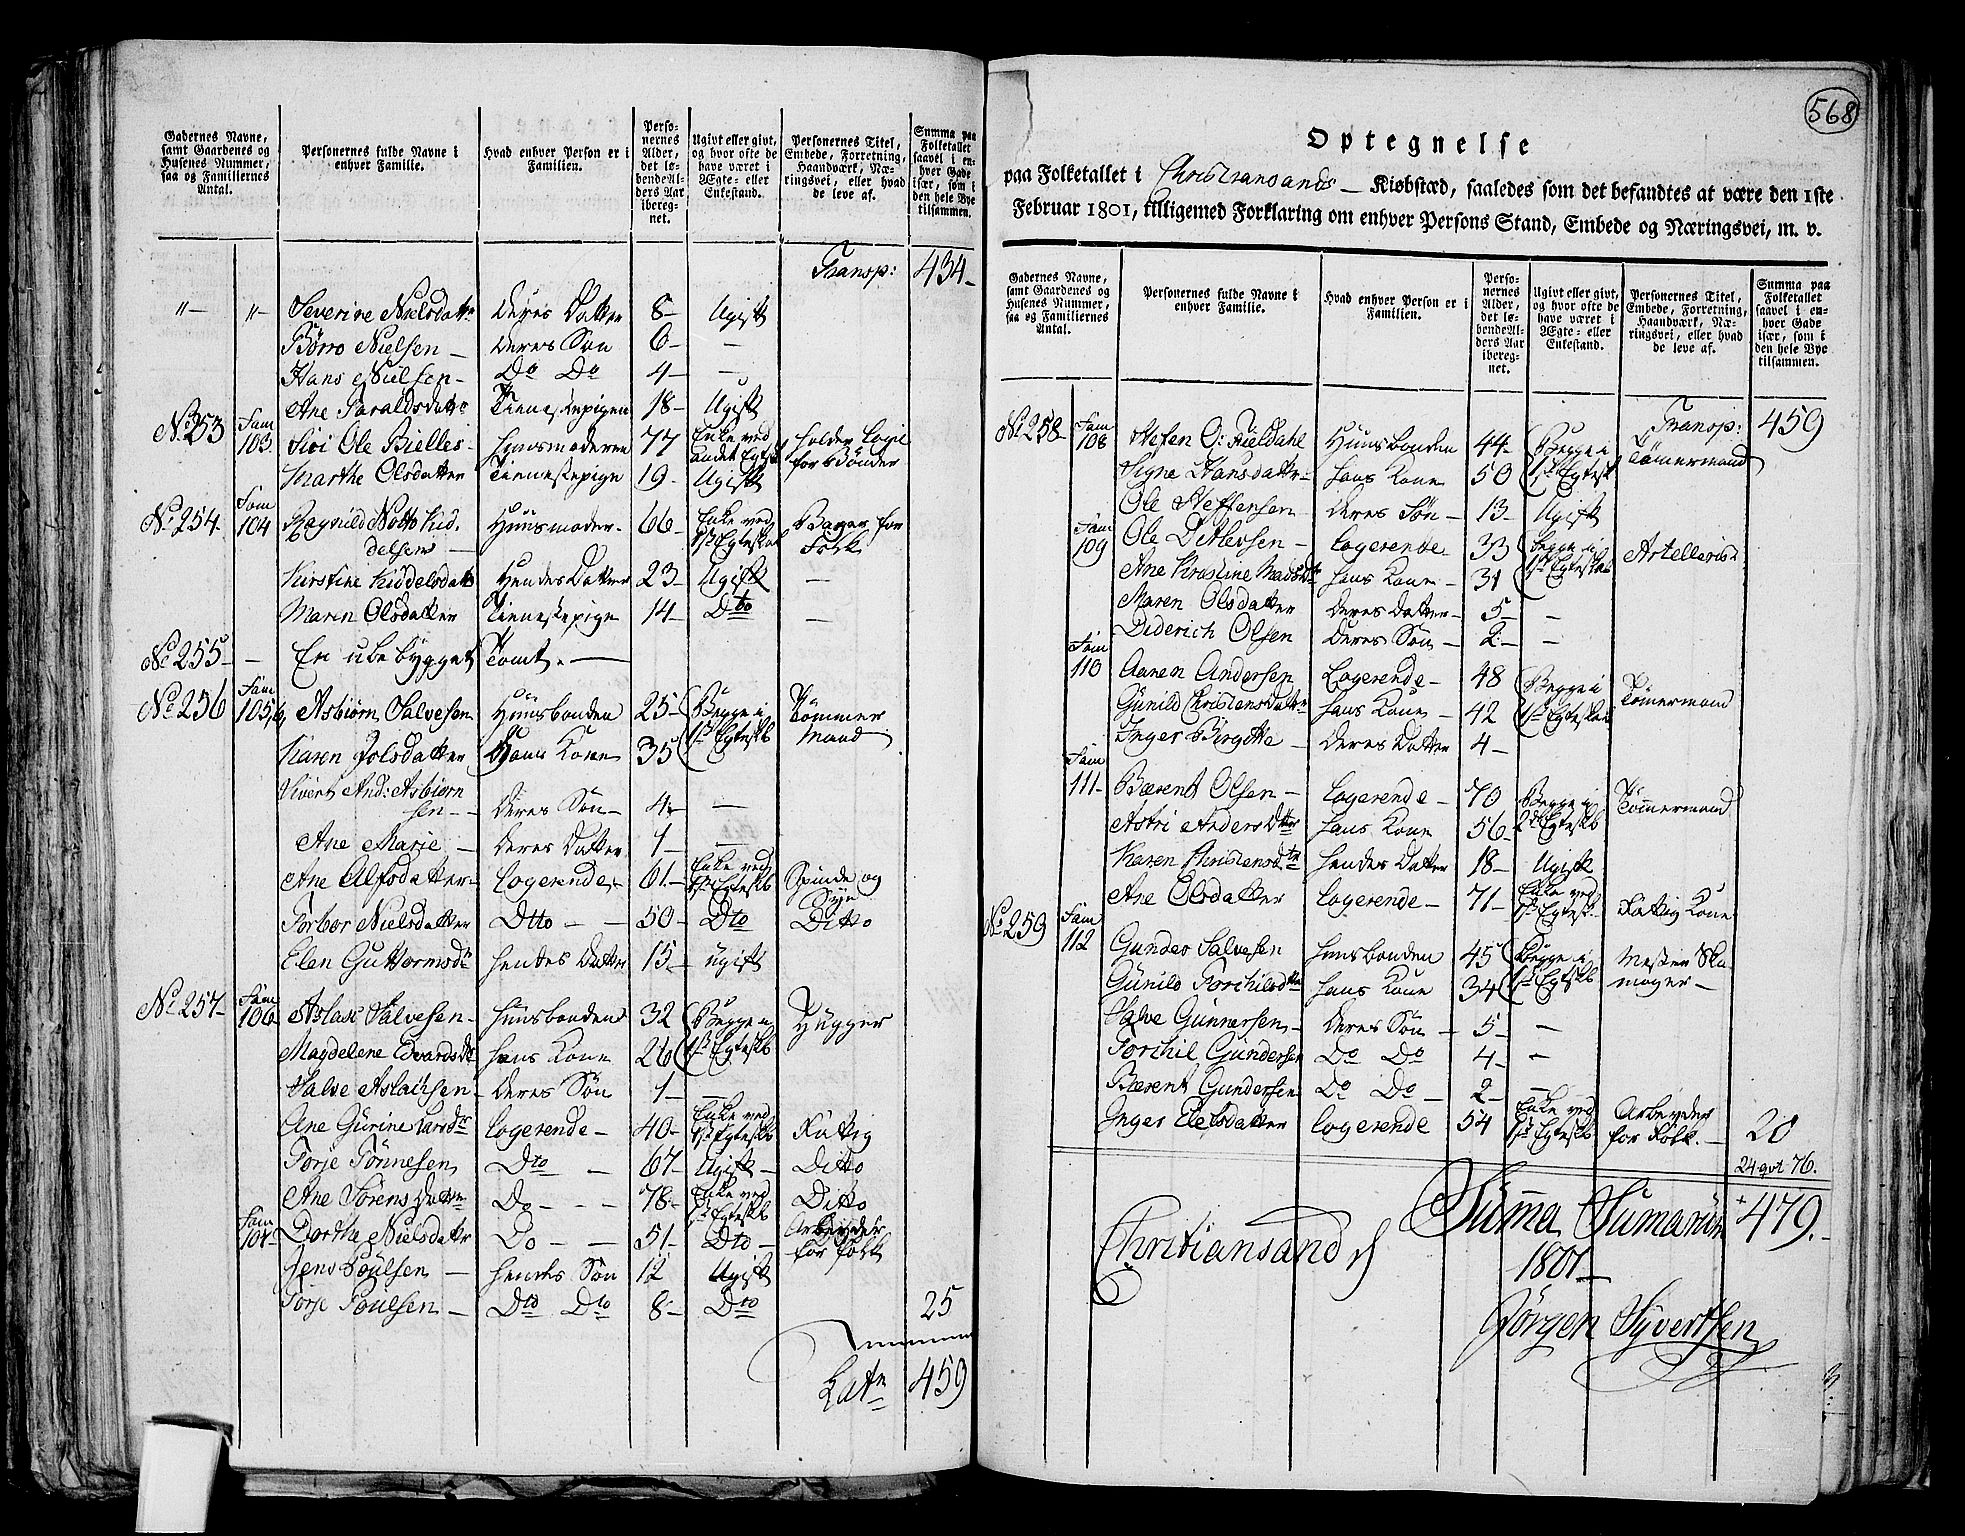 Gadernes Navne,
samt Gaardenes og
Husenes Nummer,
saa og Familiernes
Antal.
Personernes fulde Navne i
enhver Familie.
Hvad enhver Person er i
Familien.
Perso-
nernes
Alder,
det lø-
bende Al-
ders Aar
ibereg-
net.
Ugivt eller givt,
og hvor ofte de
have været i
Ægte- eller
Enkestand.
Personernes Titel,
Embede, Forretning,
Haandværk, Næ-
ringsvei, eller hvad
de leve af.
Summa paa
Folketallet
saavel i en-
hver Gade
især, som i
den hele Bye
tilsammen.
Transp: 434-
"- "- Severine Nielsdatter deres Datter 8- Ugift
Børro Nielsen - deres Søn 6- -
Hans Nielsen - Do Do 4- -
Ane Taraldsdatter Tienestepigen 18- Ugift
No 253 Fam 103. Siri Ole Bielles- Huusmoderen 77 Enke ved andet Egtesk holder Logie for Bønder
Marthe Olsdatter Tienestepige 19- Ugift
No 254. Fam 104 Ragnild Notto Kid- Huusmoder- 66- Enke ved 1ste Egteskab Bager for Folk
delsens -
Kirstine Kiddelsdatter Hendes Datter 23- Ugift -
Maren Olsdatter Tienestepige 14- Dto -
No 255- - En ubebygget Tomt. -
No 256 Fam 105, Asbiørn Salvesen Huusbonden 25- Begge i 1ste Egteskb Tømmer Mand
Karen Jolsdatter Hans Kone 35
Sivert And: Asbiørn
sen - deres Søn - 4- -
Ane Marie - deres Datter 1- -
Ane Alfsdatter- Logerende- 61- Enke ved 1ste Egteskb Spinde og Sye
Torbor Nielsdatter Dtto - - 50- Dto Ditto
Elen Guttormsdr hendes Datter 15- ugift
No 257- Fam 106 Aslak Salvesen- Huusbonden 32 Begge i 1ste Egteskb Hugger
Magdelene Edvardsdr hans Kone 26
Salve Aslachsen- deres Søn 1-
Ane Gurine Larsdr Logerende- 40- Enke ved 1ste Egteskb Fattig
Torje Tønnesen Dto - 67- Ugift- Ditto
Ane Sørens Datter Do - - - 78- Enke ved 1ste Egteskb Ditto
Fam 107- Dorthe Nielsdatter Do - - 51- Dto - Arbeyder for folk
Jens Poulsen - hendes Søn 12 Ugift
Torje Poulsen - Dto Dto 8- Dto 25
Lat 459
568
Optegnelse
paa Folketallet i Christiansands - Kiøbstæd, saaledes som det befandtes at være den 1ste
Februar 1801, tilligemed Forklaring om enhver Persons Stand, Embede og Næringsvei, m. v.
Gadernes Navne,
samt Gaardenes og
Husenes Nummer,
saa og Familiernes
Antal.
Personernes fulde Navne i
enhver Familie.
Hvad enhver Person er i
Familien.
Perso-
nernes
Alder,
det lø-
bende Al-
ders Aar
ibereg-
net.
Ugivt eller givt,
og hvor ofte de
have været i
Ægte- eller
Enkestand.
Personernes Titel,
Embede, Forretning,
Haandværk, Næ-
ringsvei, eller hvad
de leve af.
Summa paa
Folketallet
saavel i en-
hver Gade
især, som i
den hele Bye
tilsammen.
Transp: 459
No 258- Fam 108 Stefen O: Fieldahl Huusbonden 44- Begge i 1ste Egtesk Tømermand
Signe Hansdatter- hans Kone 50
Ole Steffensen- deres Søn- 13- Ugift
Fam 109 Ole Ditlevsen - Logerende- 33 Begge i 1ste Egteskb Artellerist
Ane Kirstine Madsdtr hans Kone- 31
Maren Olsdatter deres Datter- 5- -
Diderich Olsen deres Søn- 2- -
Fam 110 Aanen Andersen Logerende- 48 Begge i 1ste Egteskb Tømermand
Gunild Christensdatter hans Kone- 42
Inger Birgitte - deres Datter 4-
Fam 111- Bærent Olsen - Logerende- 70 Begge i 2det Egteskb Tømmermand
Astri Anders Dtter hans Kone 56
Karen Christensdtr hendes Datter 18- Ugift
Ane Olsdatter Logerende- 71- Enke ved 1ste Egtesk- Fattig Kone
No 259 Fam 112 Gunder Salvesen Huusbonden 45 Begge i 1ste Egteskb Mester Sko-
Gunild Torchilsdtter hans Kone 34 mager-
Salve Gunnersen- deres Søn - 5- -
Torchil Gundersen Do Do 4- -
Bærent Gundersen Do Do - 2- -
Inger Elefsdatter Logerende 54 Enke ved 1ste Egteskb Arbeyder for Folk. - 20
24 gvt 76.
Summa Sumarum 479.
Christiansand d
1801-
Jørgen Syvertsen